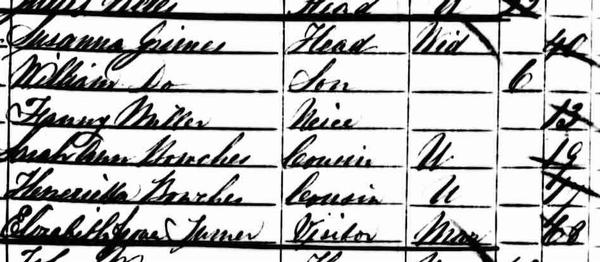 Head
Susanna Grieves Head Wid 40
William Do Son 6
Fanny Miller Neice 13
Sarah Ann Bowches Cousin U 19
Henrietta Bowches Cousin U 17
Elizabeth Turner Visitor Mar 68